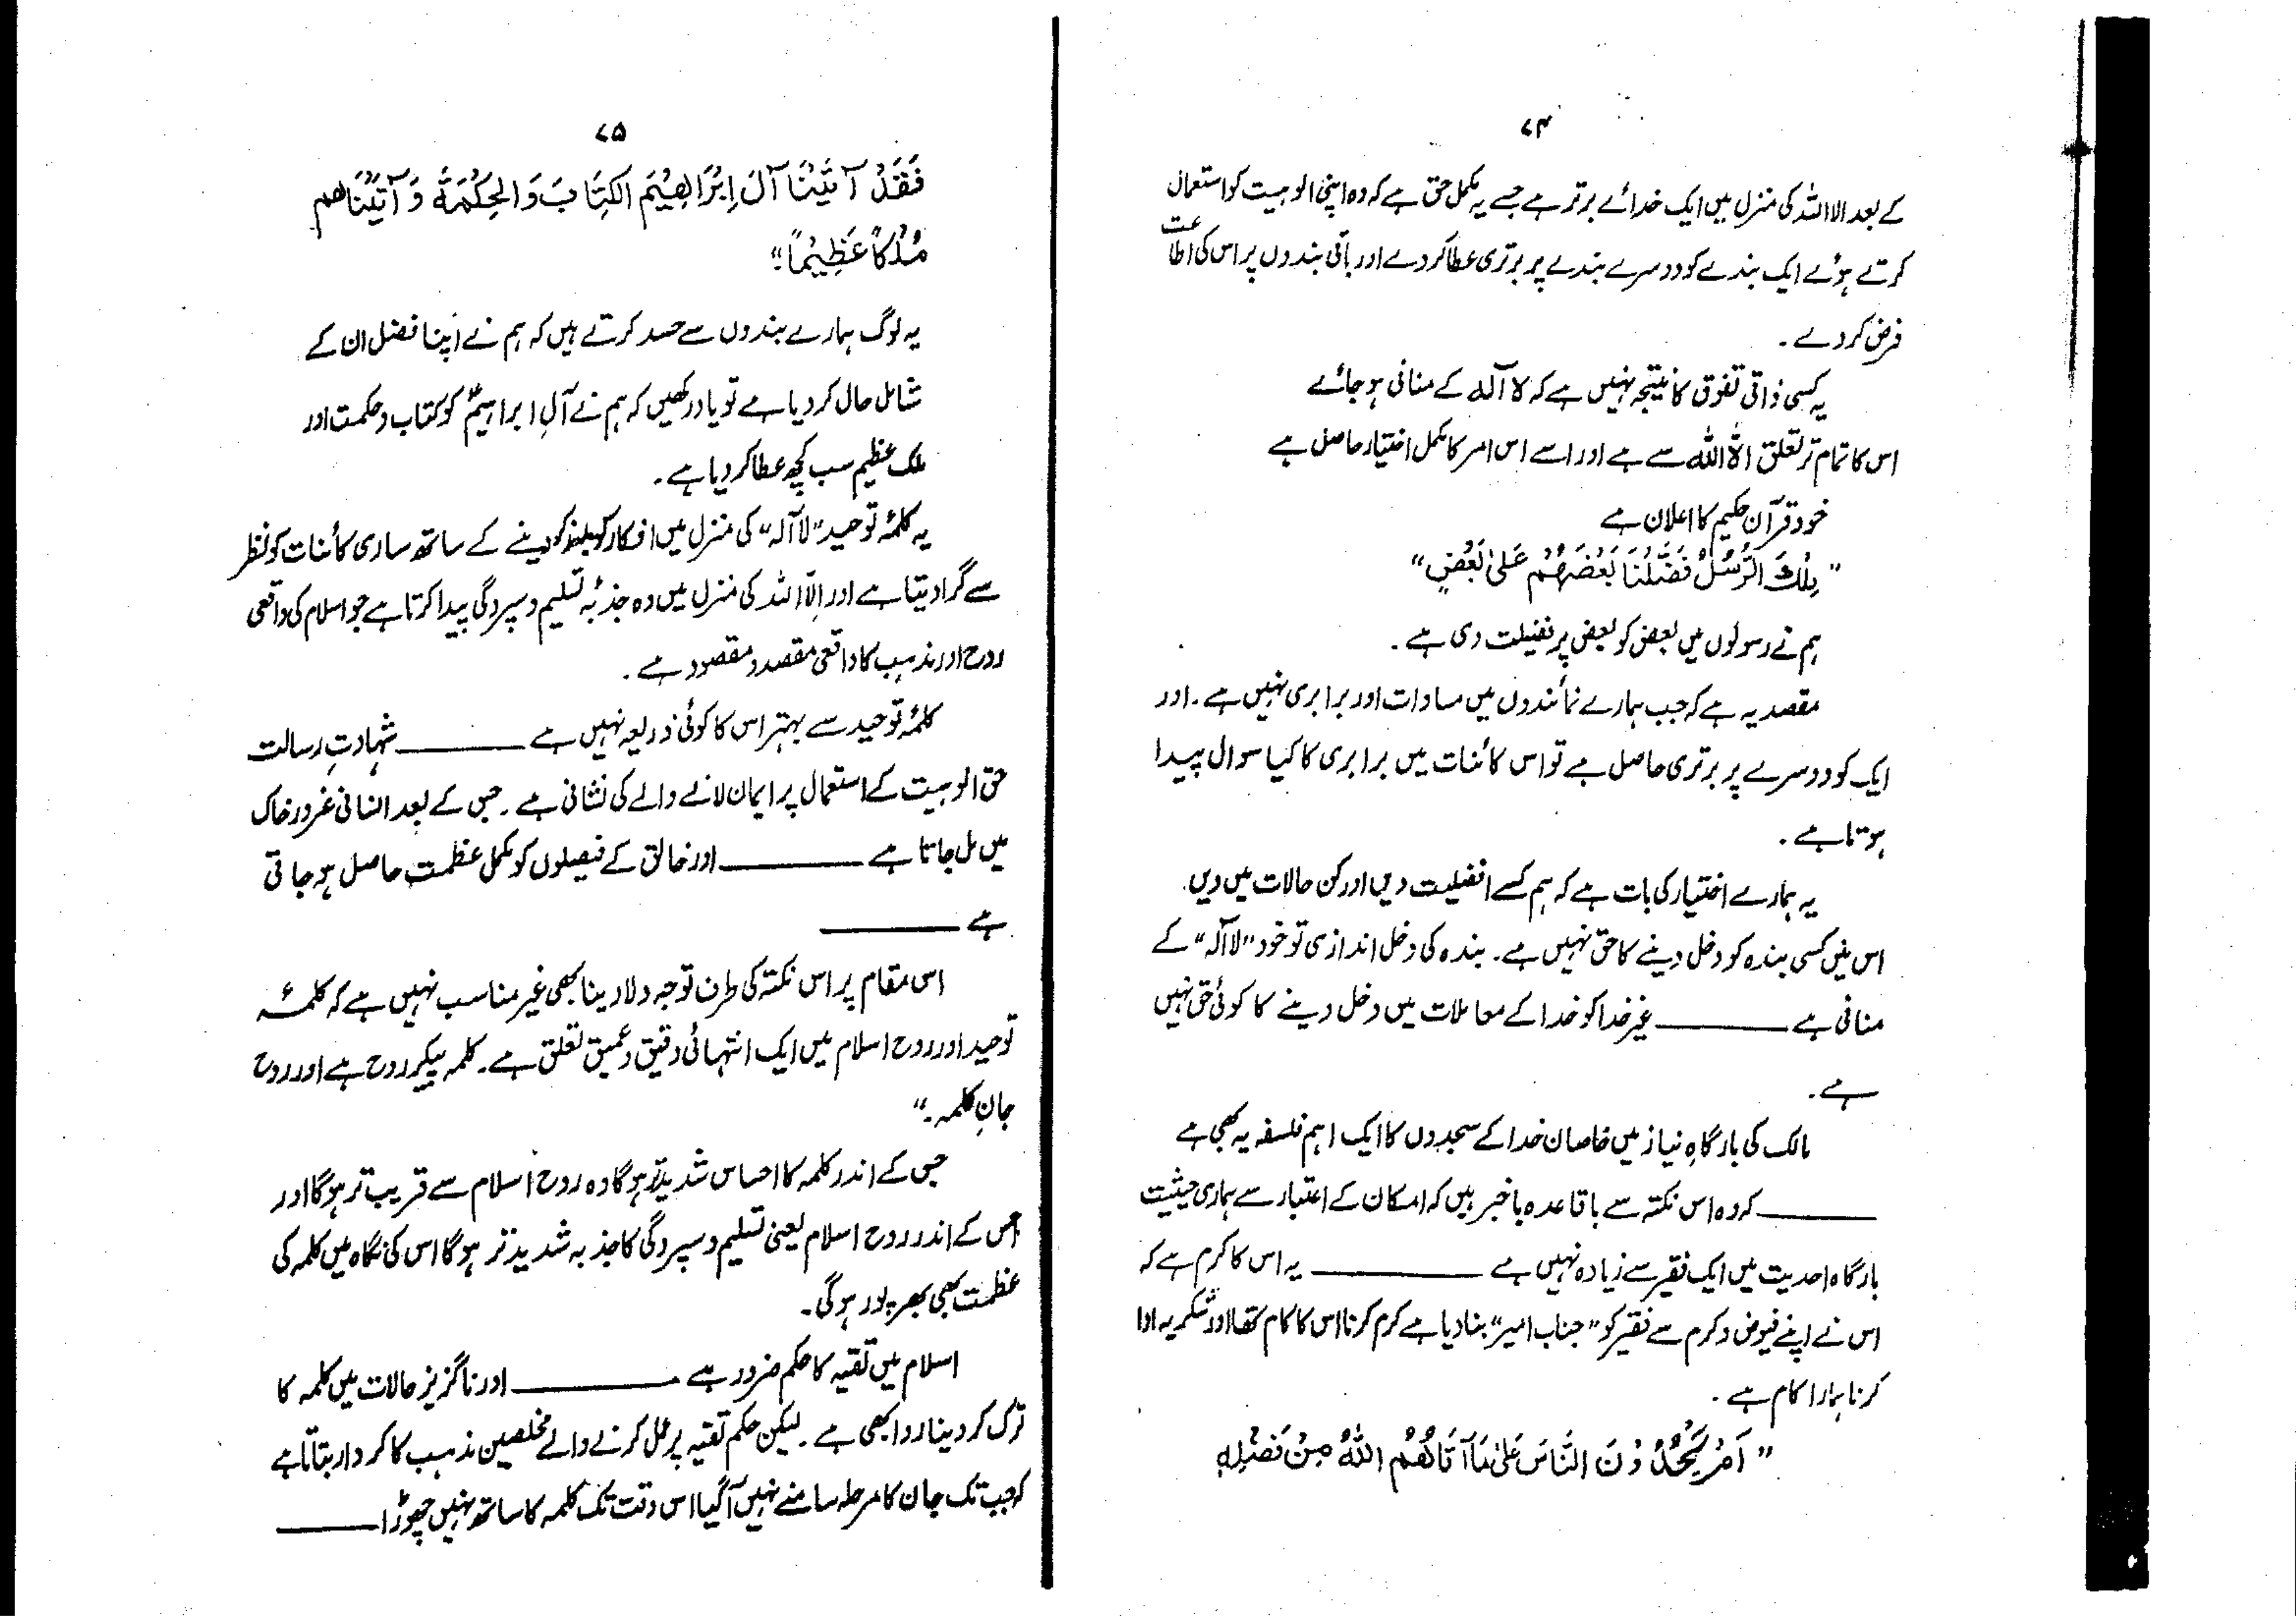 ۷۴
کے بعد الا اللہ کی منزل میں ایک خدائے برتر ہے جسے یہ مکمل حق ہے کہ وہ اپنی الوہیت کو استعمال
کرتے ہوئے ایک بندے کو دوسرے بندے پر برتری عطا کر دے اور باقی بندوں پر اس کی اطاعت
فرض کر دے ۔
یہ کسی ذاتی تفوق کا نتیجہ نہیں ہے کہ لا آلہ کے منافی ہو جائے
اس کا تمام تر تعلق الّا اللّٰہ سے ہے اور اسے اس امر کا مکمل اختیار حاصل ہے
خود قرآن حکیم کا اعلان ہے
"تِلْكَ الرُّسُلُ فَضَّلْنَا بَعْضَهُمْ عَلىٰ بَعْضٍ"
ہم نے رسولوں میں بعض کو بعض پر فضیلت دی ہے ۔
مقصد یہ ہے کہ جب ہمارے نمائندوں میں مساوات اور برابری نہیں ہے ۔ اور
ایک کو دوسرے پر برتری حاصل ہے تو اس کائنات میں برابری کا کیا سوال پیدا
ہوتا ہے ۔
یہ ہمارے اختیار کی بات ہے کہ ہم کسے افضلیت دیں اور کن حالات میں دیں
اس میں کسی بندہ کو دخل دینے کا حق نہیں ہے ۔ بندہ کی دخل اندازی تو خود "لا آلہ" کے
منافی ہے ــــــــــ غیر خدا کو خدا کے معاملات میں دخل دینے کا کوئی حق نہیں
ہے ۔
مالک کی بارگاہِ نیاز میں خاصان خدا کے سجدوں کا ایک اہم فلسفہ یہ بھی ہے
ــــــــــ کہ وہ اس نکتہ سے باقاعدہ باخبر ہیں کہ امکان کے اعتبار سے ہماری حیثیت
بارگاہ احدیت میں ایک فقیر سے زیادہ نہیں ہے ــــــــــ یہ اس کا کرم ہے کہ
اس نے اپنے فیوض و کرم سے فقیر کو "جناب امیر" بنا دیا ہے کرم کرنا اس کا کام تھا اور شکریہ ادا
کرنا ہمارا کام ہے ۔
"اَمْ يَحْسُدُوْنَ النَّاسَ عَلىٰ مَا آتَاهُمُ اللّٰهُ مِنْ فَضْلِهِ
۷۵
فَقَدْ آتَيْنَا آلَ اِبْرَاهِيْمَ الْكِتَابَ وَالْحِكْمَةَ وَآتَيْنَاهم
مُلْكاً عَظِيْماً"
یہ لوگ ہمارے بندوں سے حسد کرتے ہیں کہ ہم نے اپنا فضل ان کے
شامل حال کر دیا ہے تو یاد رکھیں کہ ہم نے آلِ ابراہیمؑ کو کتاب و حکمت اور
ملک عظیم سب کچھ عطا کر دیا ہے ۔
یہ کلمۂ توحید "لا آلہ" کی منزل میں افکار کو بلند کر دینے کے ساتھ ساری کائنات کو نظر
سے گرا دیتا ہے اور اِلّا اللہ کی منزل میں وہ جذبۂ تسلیم و سپردگی پیدا کرتا ہے جو اسلام کی واقعی
روح اور مذہب کا واقعی مقصد و مقصود ہے ۔
کلمۂ توحید سے بہتر اس کا کوئی ذریعہ نہیں ہے ــــــــــ شہادتِ رسالت
حق الوہیت کے استعمال پر ایمان لانے والے کی نشانی ہے ۔ جس کے بعد انسانی غرور خاک
میں مل جاتا ہے ــــــــــ اور خالق کے فیصلوں کو مکمل عظمت حاصل ہو جاتی
ہے ــــــــــ
اس مقام پر اس نکتہ کی طرف توجہ دلا دینا بھی غیر مناسب نہیں ہے کہ کلمۂ
توحید اور روح اسلام میں ایک انتہائی دقیق و عمیق تعلق ہے ۔ کلمہ پیکر روح ہے اور روح
جانِ کلمہ ۔"
جس کے اندر کلمہ کا احساس شدید تر ہوگا وہ روح اسلام سے قریب تر ہوگا اور
جس کے اندر روح اسلام یعنی تسلیم و سپردگی کا جذبہ شدید تر ہوگا اس کی نگاہ میں کلمہ کی
عظمت بھی بھرپور ہوگی ۔
اسلام میں تقیہ کا حکم ضرور ہے ــــــــــ اور ناگزیر حالات میں کلمہ کا
ترک کر دینا روا بھی ہے ۔ لیکن حکم تقیہ پر عمل کرنے والے مخلصین مذہب کا کردار بتاتا ہے
کہ جب تک جان کا مرحلہ سامنے نہیں آگیا اس وقت تک کلمہ کا ساتھ نہیں چھوڑا ــــــــــ